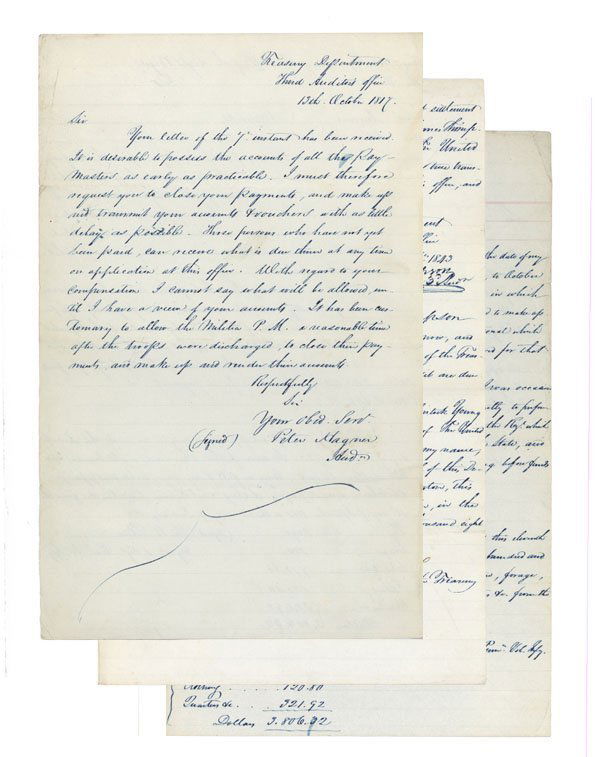 Treasury Department
Third Auditor's Office
13th October 1817.
Sir
Your letter of the 7th instant has been received.
It is desirable to possess the accounts of all the Pay-
Masters as early as practicable. I must therefore
request you to close your payments, and make up
and transmit your accounts & vouchers with as little
delay as possible. Those persons who have not yet
been paid, can receive what is due them at any time
on application at this office. With regard to your
compensation I cannot say what will be allowed un-
til I have a view of your accounts. It has been cus-
tomary to allow the Militia P.M. a reasonable time
after the troops were discharged, to close their pay-
ments, and make up and render their accounts
Respectfully
Sir
Your Obed. Servt
(Signed) Peter Hagner
Audr
settlement
United
office, and
1843
and
of the Treas-
are due
Young
of the United
my name,
of this De-
this
in the
thousand eight
Treasury
the date of my
to October
in which
to make up
which
for that
I was
the Regt. which
State, and
before funds
this eleventh
hundred and
forage,
from the
Vol. Infy.
Clothing . . . . 120.80
Quarters &c. . . 321.92
Dollars 3.806.92